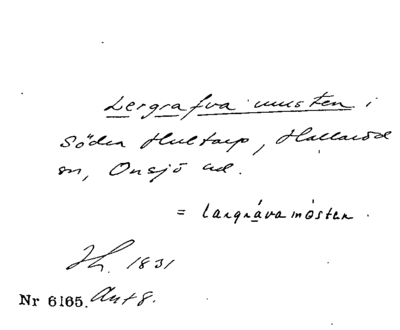 Lergrafva musten i
Söder Hultarp, Hallaröd
sn, Onsjö hd.
= largråvamösten.
Th. 1831
Nr 6165. Ant 8.